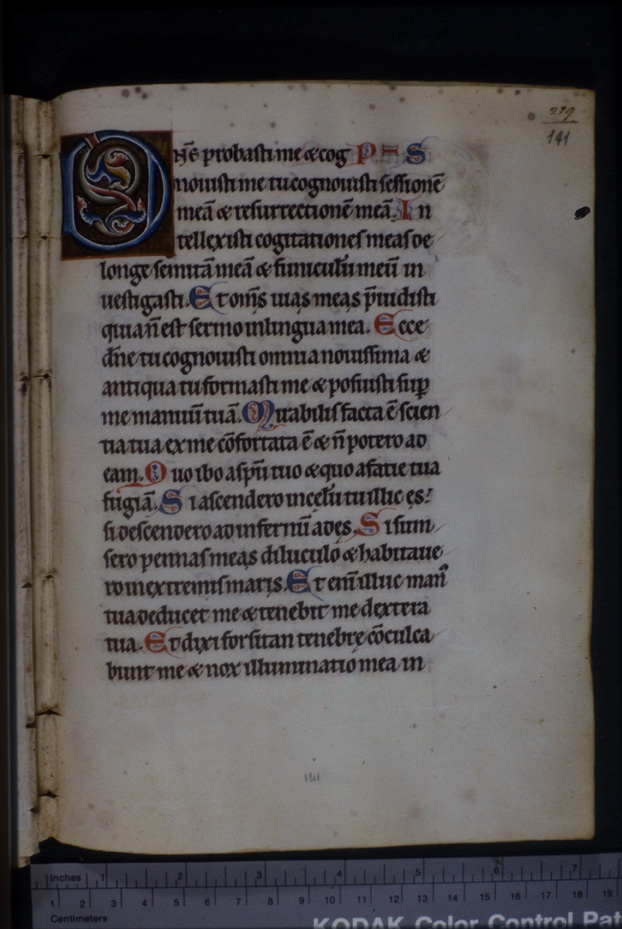 279
141
Dn̄e probasti me & cog PS
nouisti me tu cognouisti sessionē
meā & resurrectionē meā. In
tellexisti cogitationes meas de
longe semitā meā & funiculū meū in
uestigasti. Et om̄s uias meas p̄uidisti
quia n̄ est sermo in lingua mea. Ecce
dn̄e tu cognouisti omnia nouissima &
antiqua tu formasti me & posuisti sup̄
me manuū tuā. Mirabilis facta ē scien
tia tua ex me cōfortata ē & n̄ potero ad
eam. Quo ibo a sp̄u tuo & quo a facie tua
fugiā. Si ascendero in celū tu illic es:
si descendero ad infernū ades. Si sum
sero pennas meas diluculo & habitaue
ro in extremis maris. Et eni̅ illuc man᷒
tua deducet me & tenebit me dextera
tua. Et dixi forsitan tenebrę cōculca
bunt me & nox illuminatio mea in
141
Inches 1 2 3 4 5 6 7
1 2 3 4 5 6 7 8 9 10 11 12 13 14 15 16 17 18 19
Centimeters
KODAK Color Control Pat